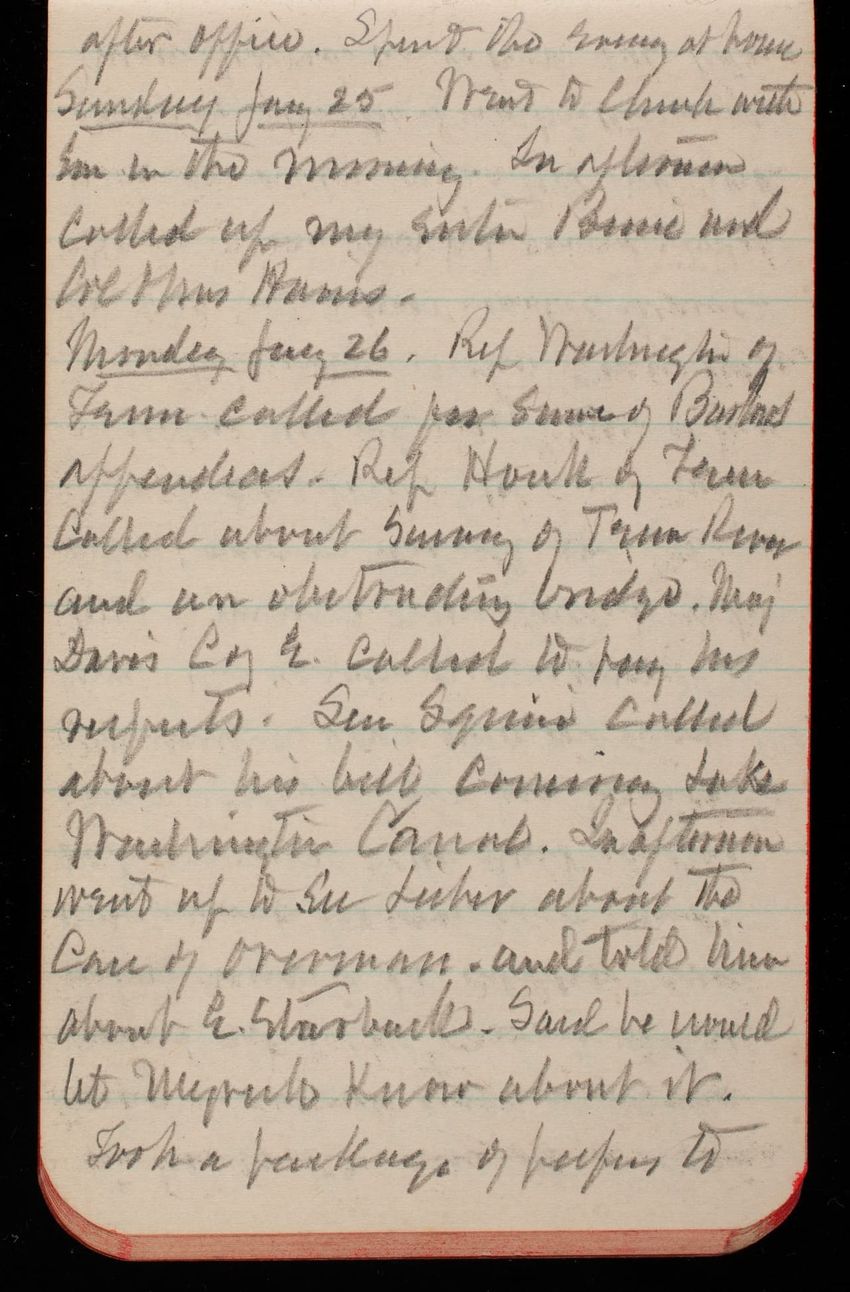 after office. Spent the evening at home
Sunday Jany 25 Went to Church with
Em in the morning. In afternoon
called up my sister Bessie and
Col Thos Harris.
Monday Jany 26. Rep Washington of
Tenn called for Survey of
Rep Houk of Tenn
Called about Survey of Tenn River
and an obstructing bridge. Maj
Davis Coy E. called to pay his
respects. Sen Squire called
about his bill Lake
Washington Canal. In afternoon
went up to see about the
Case of Overman. and told him
about E. Starbuck. Said he would
let Know about it.
Took a package of papers to